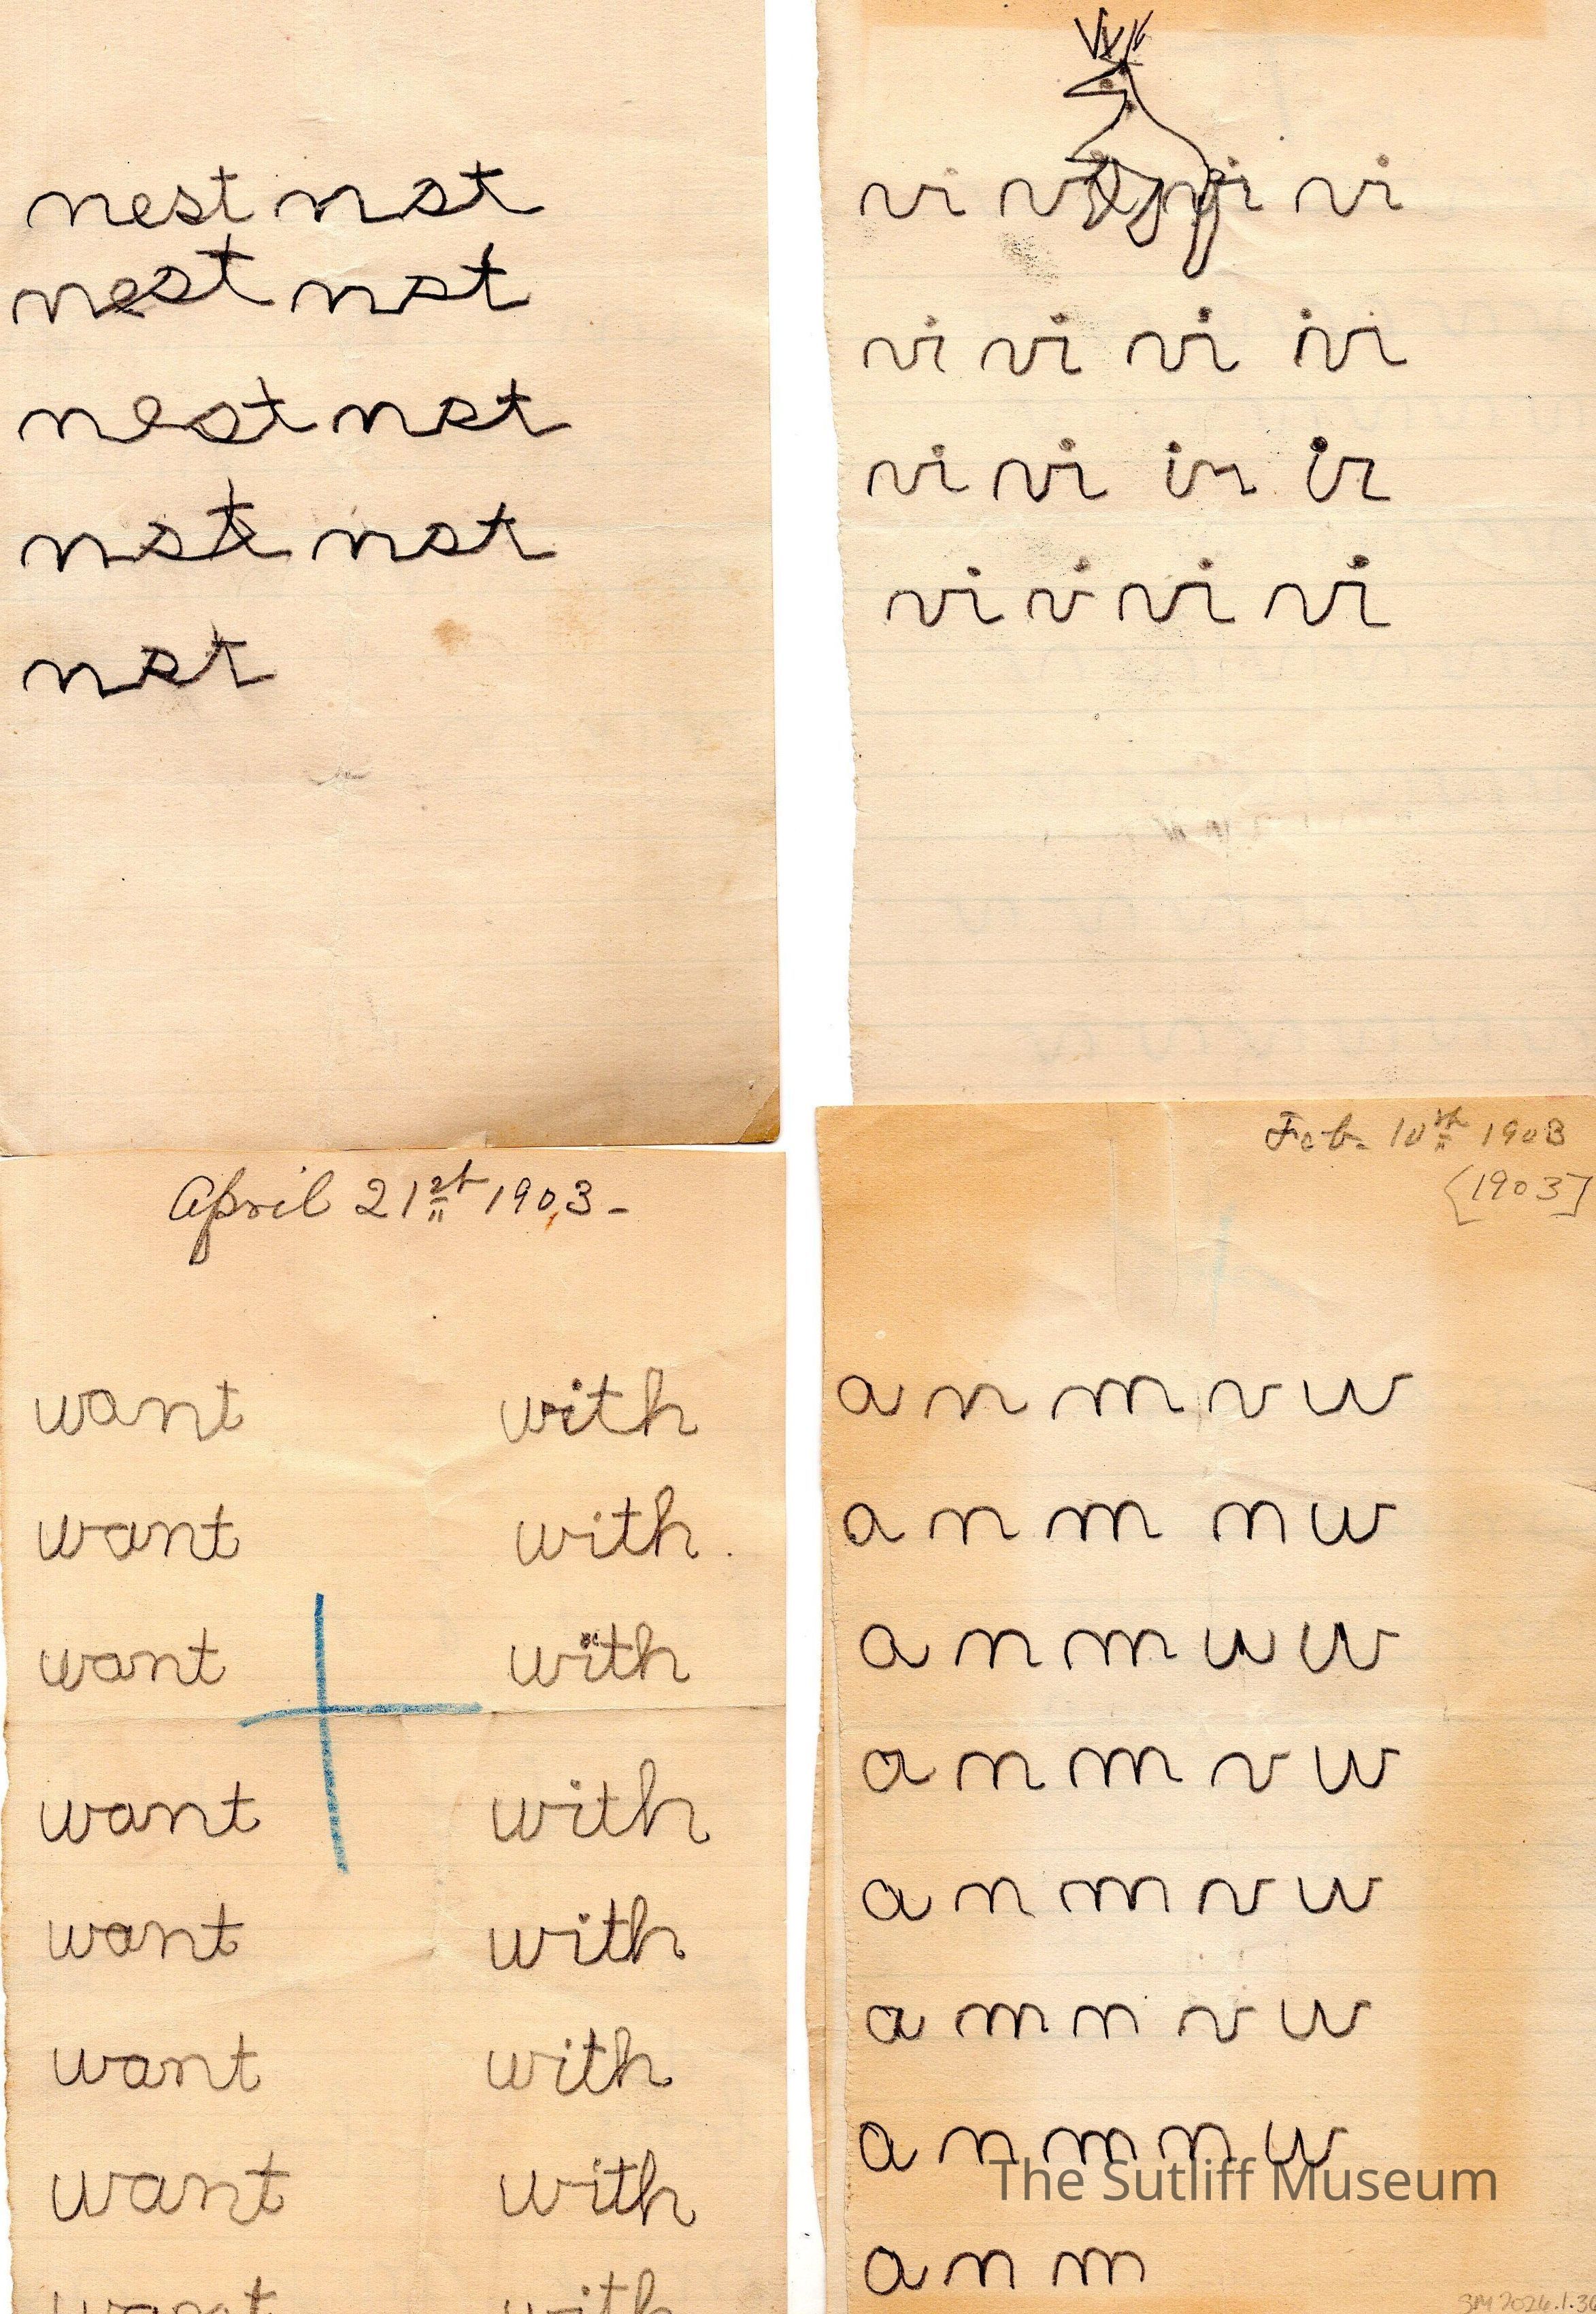 nest nst
nest nst
nest nst
nst nst
nst
vi vi vi vi
vi vi vi ivi
vi vi ir ir
vi v vi vi
April 21st 1903-
want with
want with.
want with
want with
want with
want with
want with
want with
Feb. 10th 1903
[1903]
a n m v w
a n m n w
a n m w w
a n m v w
a n m v w
a m n v w
a n m n w
a n m
The Sutliff Museum
SM 2026.1.30